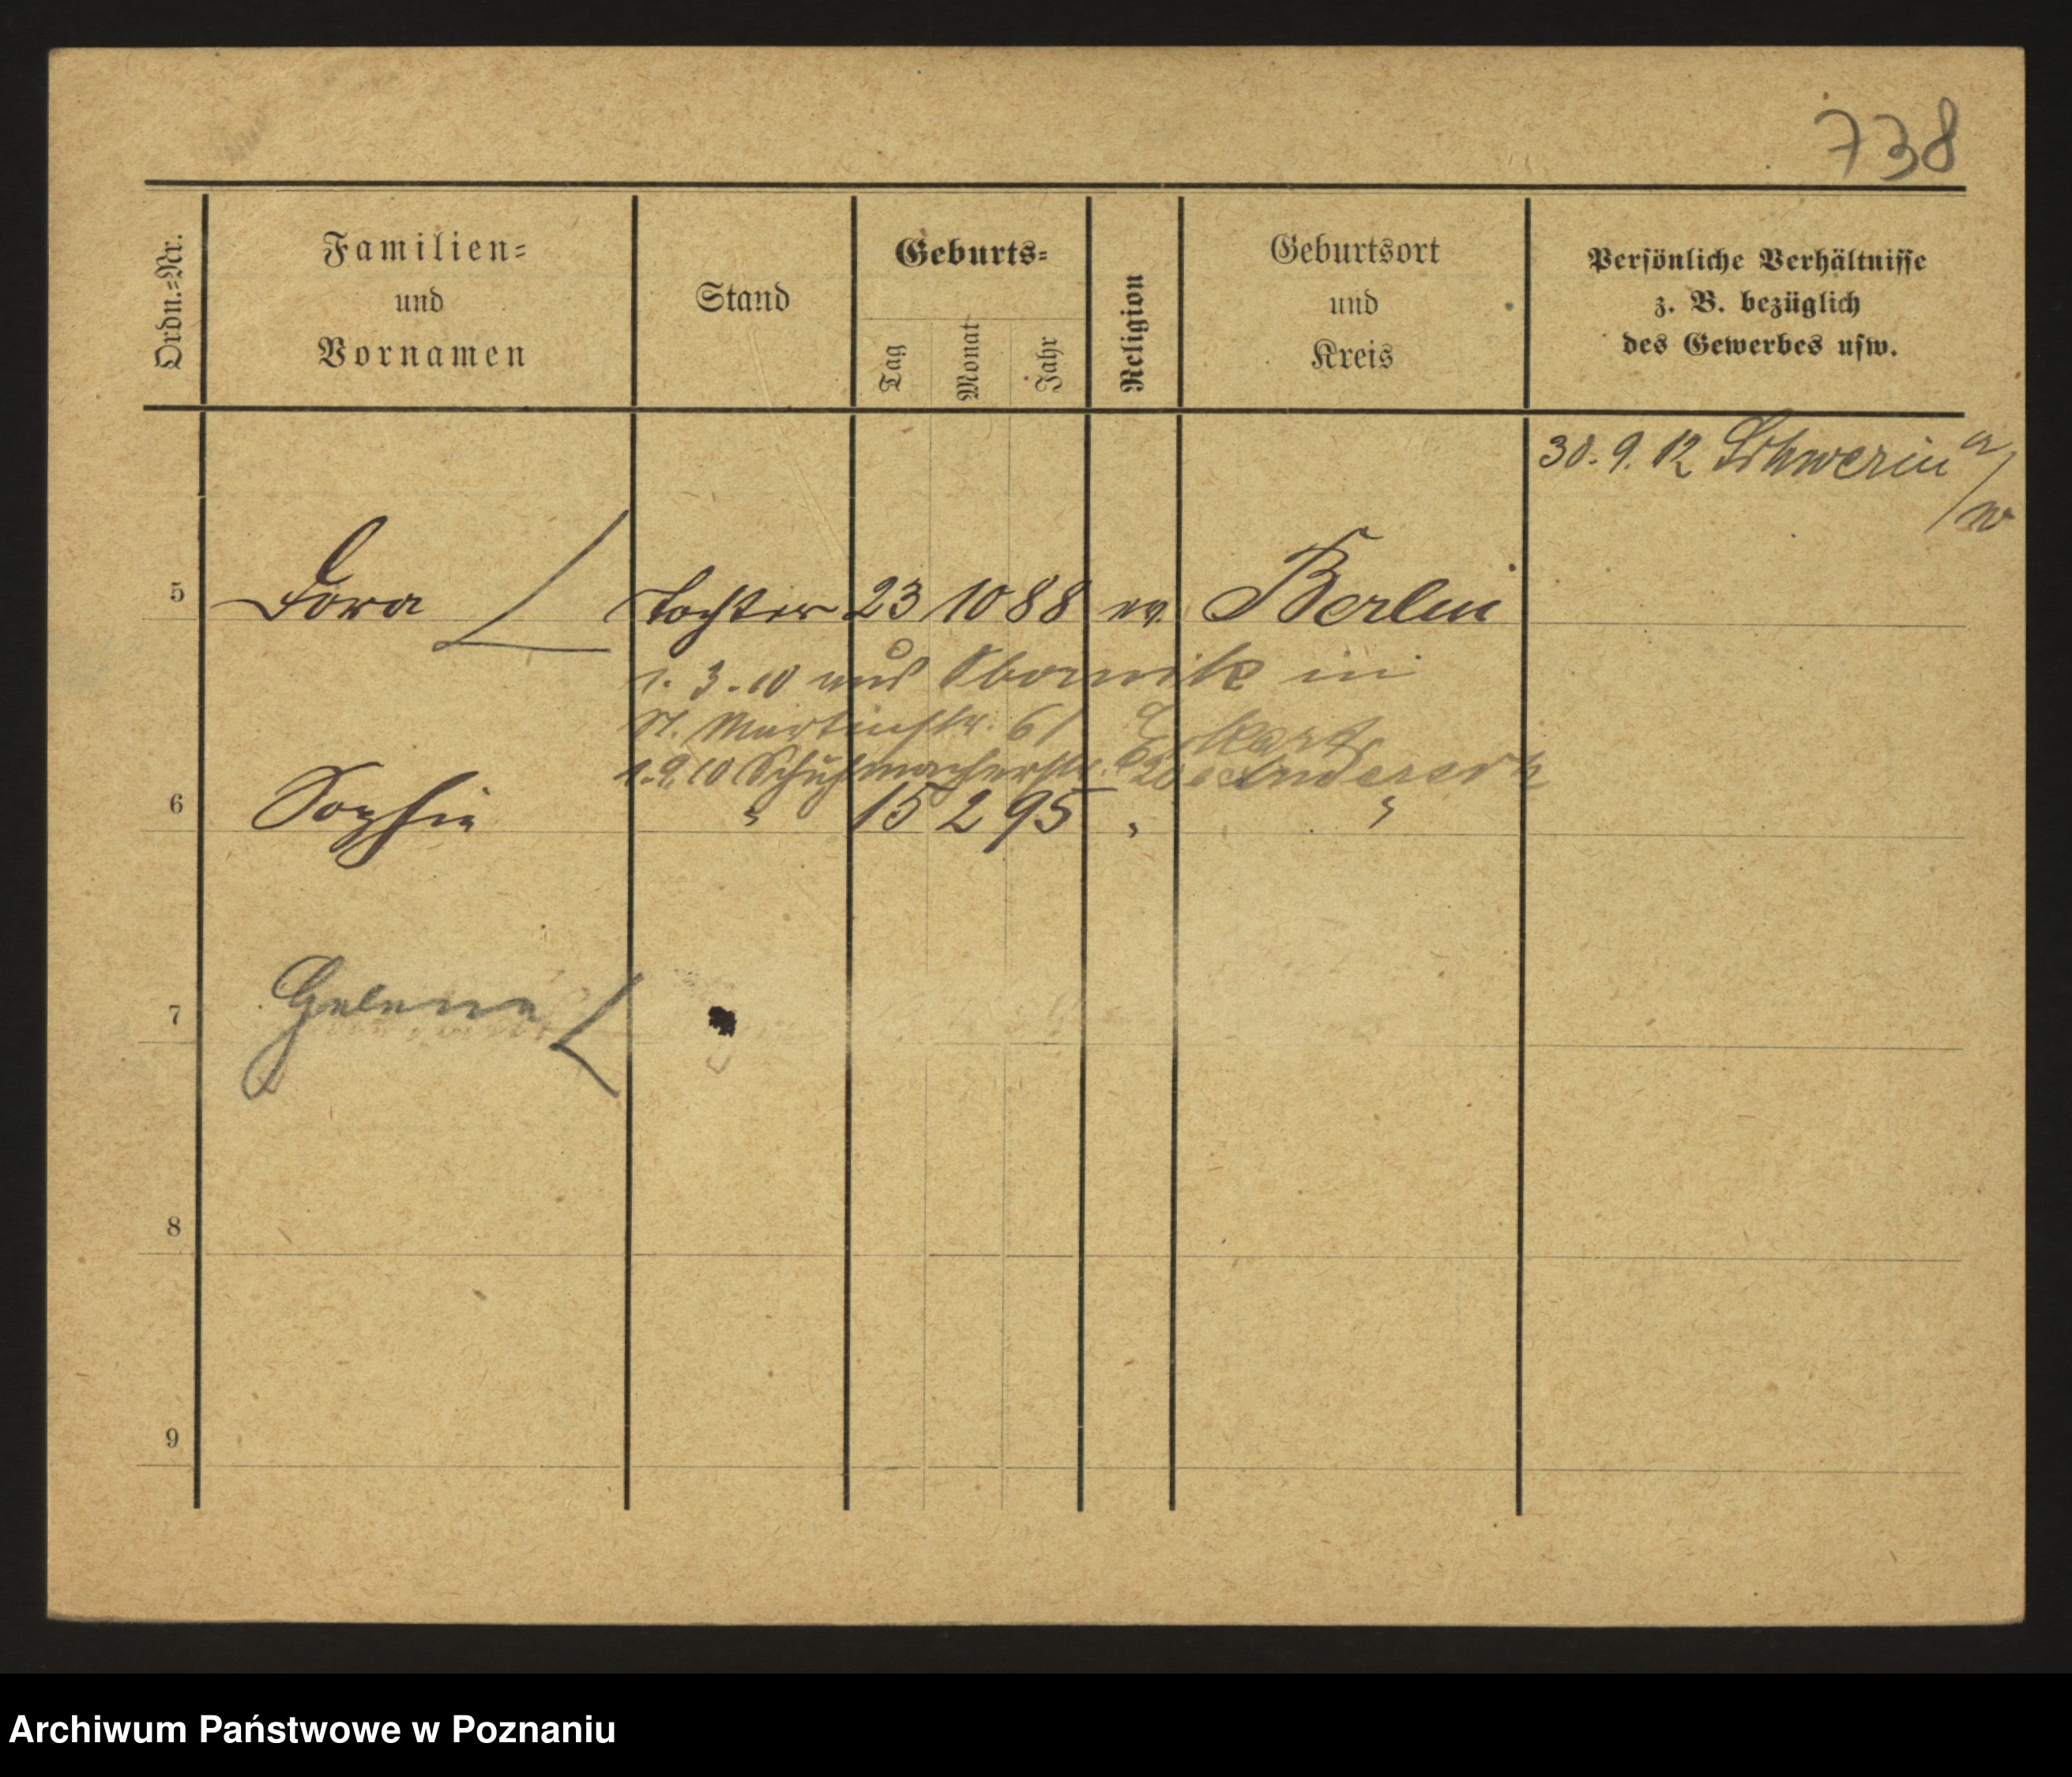 738
Ordn.-Nr.
Familien-
und
Vornamen
Stand
Geburts-
Tag
Monat
Jahr
Religion
Geburtsort
und
Kreis
Persönliche Verhältnisse
z. B. bezüglich
des Gewerbes usw.
30. 9. 12 Schwerin a/w
5 Dora Tochter 23 10 88 ev. Berlin
1. 3. 10 aus in
St. Martinstr. 61
1. 9. 10 Schuhmacherstr.
6 Sophie " 15 2 95 " "
7 Helene
8
9
Archiwum Państwowe w Poznaniu